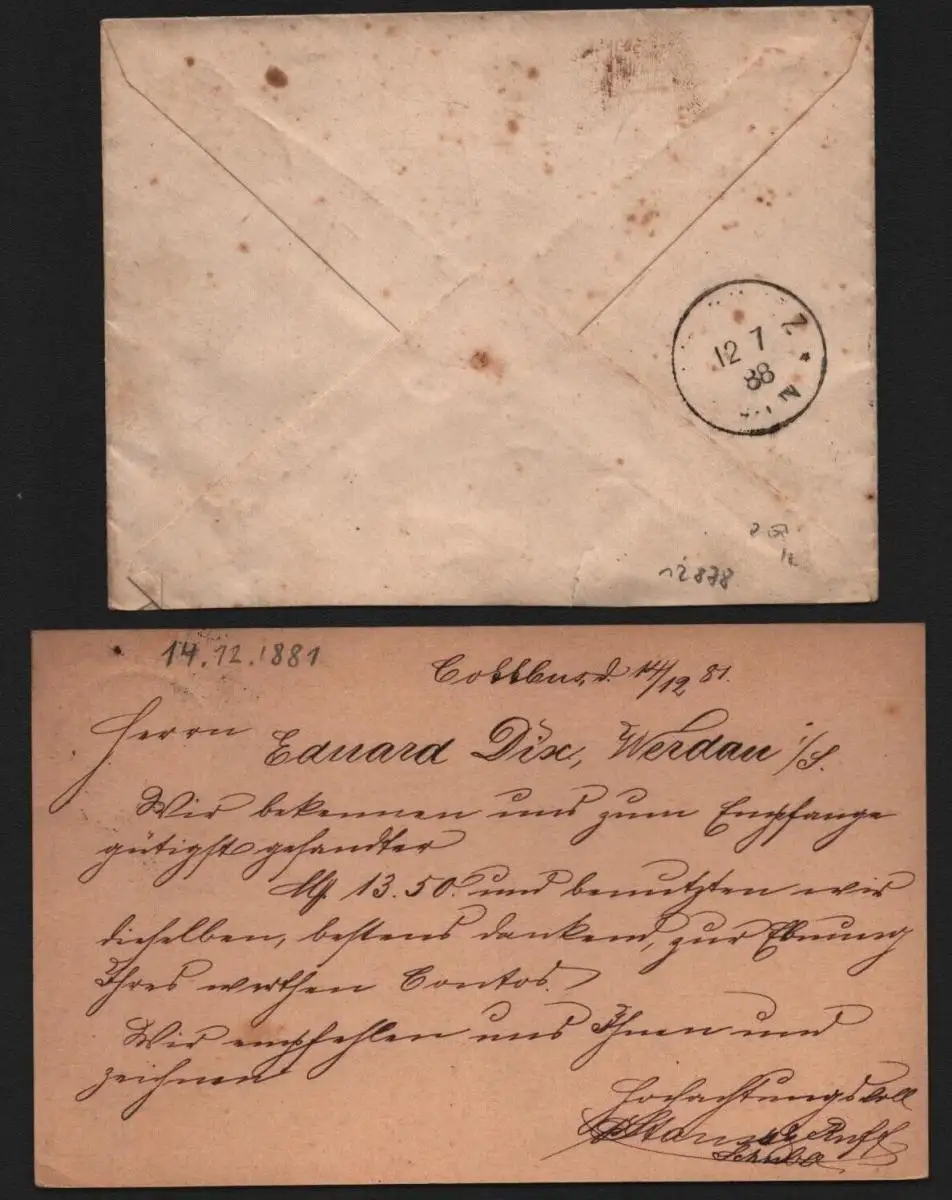 Z.
12 7
88
N
12878
14.12.1881
Cottbus, d. 14/12 81.
Herrn
Eduard Dix, Werdau i/S.
Wir bekennen uns zum Empfange
gütigst gesandter
M. 13.50. und benutzten wir
dieselben, bestens dankend, zur Ebnung
Ihres werthen Contos.
Wir empfehlen uns Ihnen und
zeichnen
Hochachtungsvoll